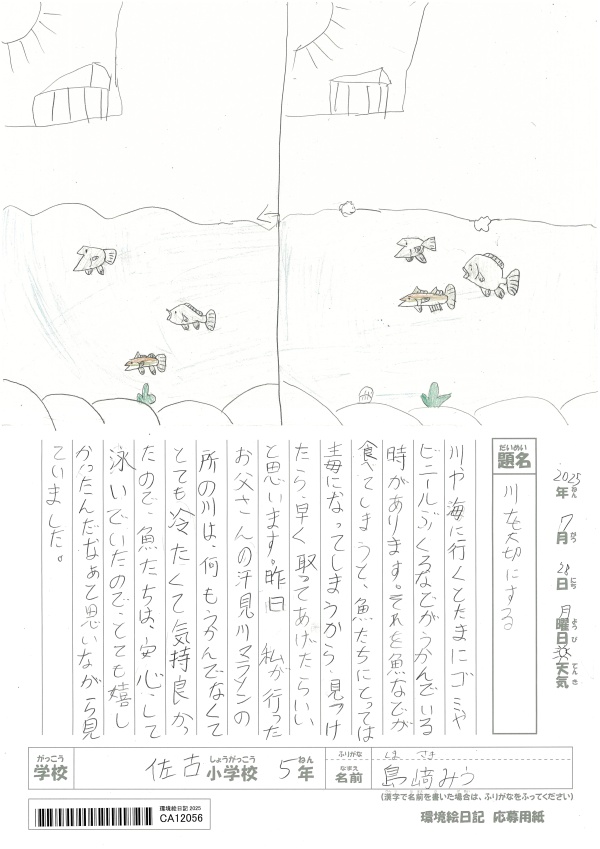 2025年ねん 7月がつ 28日にち 月曜日ようび 天気てんき
題名だいめい
川を大切にする
川や海に行くとたまにゴミや
ビニールぶくろなどがうかんでいる
時があります。それを魚などが
食べてしまうと、魚たちにとっては
毒になってしまうから、見つけ
たら、早く取ってあげたらいい
と思います。昨日、私が行った
お父さんの汗見川マラソンの
所の川は、何もうかんでなくて
とても冷たくて気持良かっ
たので、魚たちは、安心して
泳いでいたので、とても嬉し
かったんだなぁて思いながら見
ていました。
学校がっこう 佐古小学校しょうがっこう 5年ねん
ふりがな しま さき
名前なまえ 島﨑みう
(漢字で名前を書いた場合は、ふりがなをふってください)
環境絵日記 2025
CA12056
環境絵日記 応募用紙